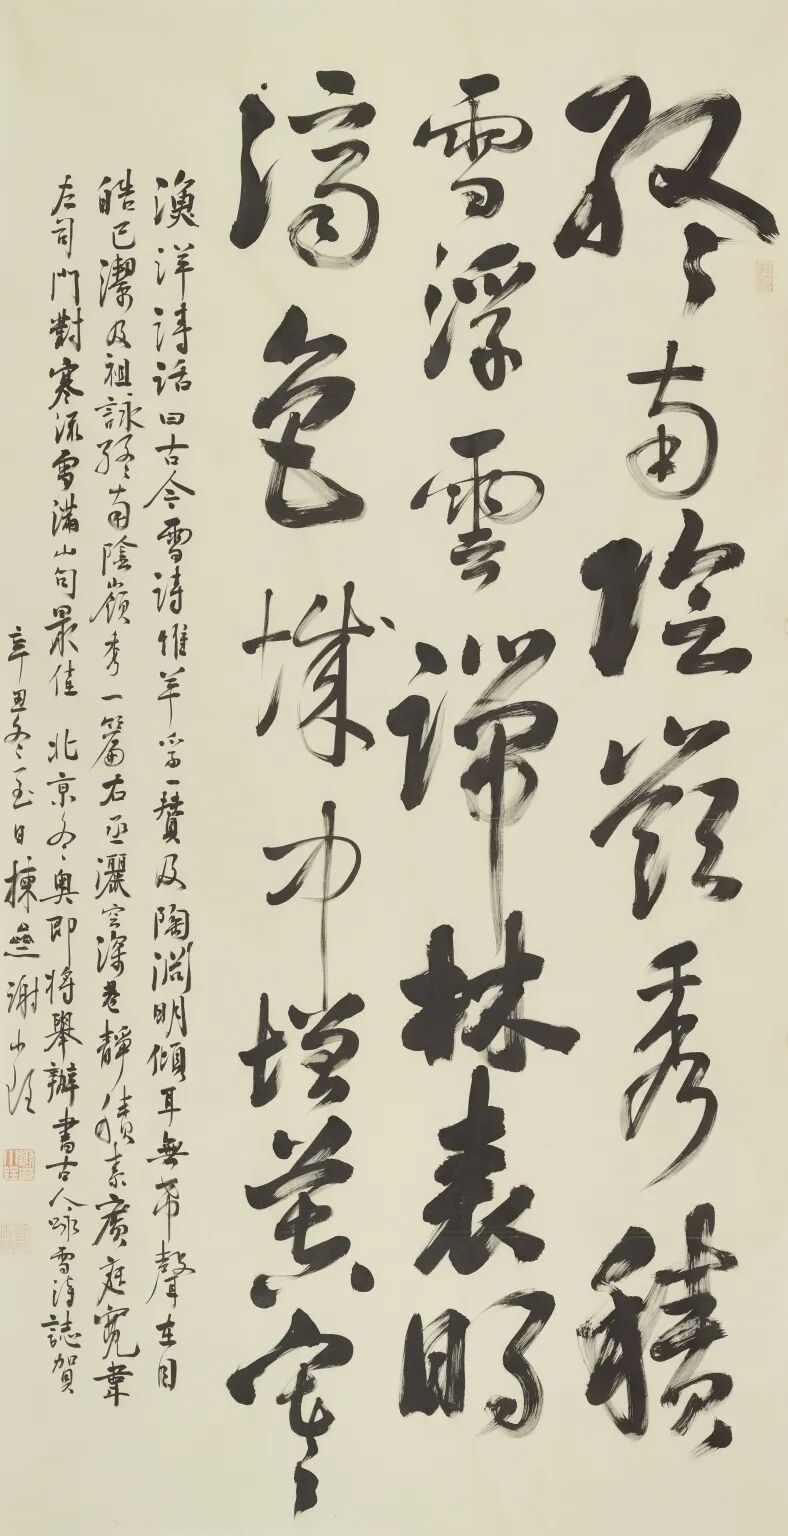 終南陰嶺秀積
雪浮雲端林表明
濟色城中增暮寒
漁洋詩話曰古今雪詩惟羊孚一贊及陶淵明傾耳無希聲在目
皓已潔及祖詠終南陰嶺秀一篇右丞灑空深巷靜積素廣庭寬韋
左司門對寒流雪滿山句最佳 北京冬奧即將舉辦書古人咏雪詩誌賀
辛丑冬至日 謝小銓